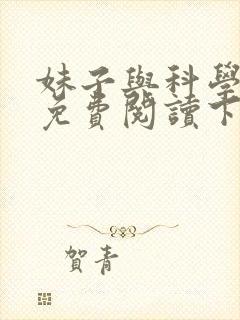 妹子與科學
免費閱讀下
賀青